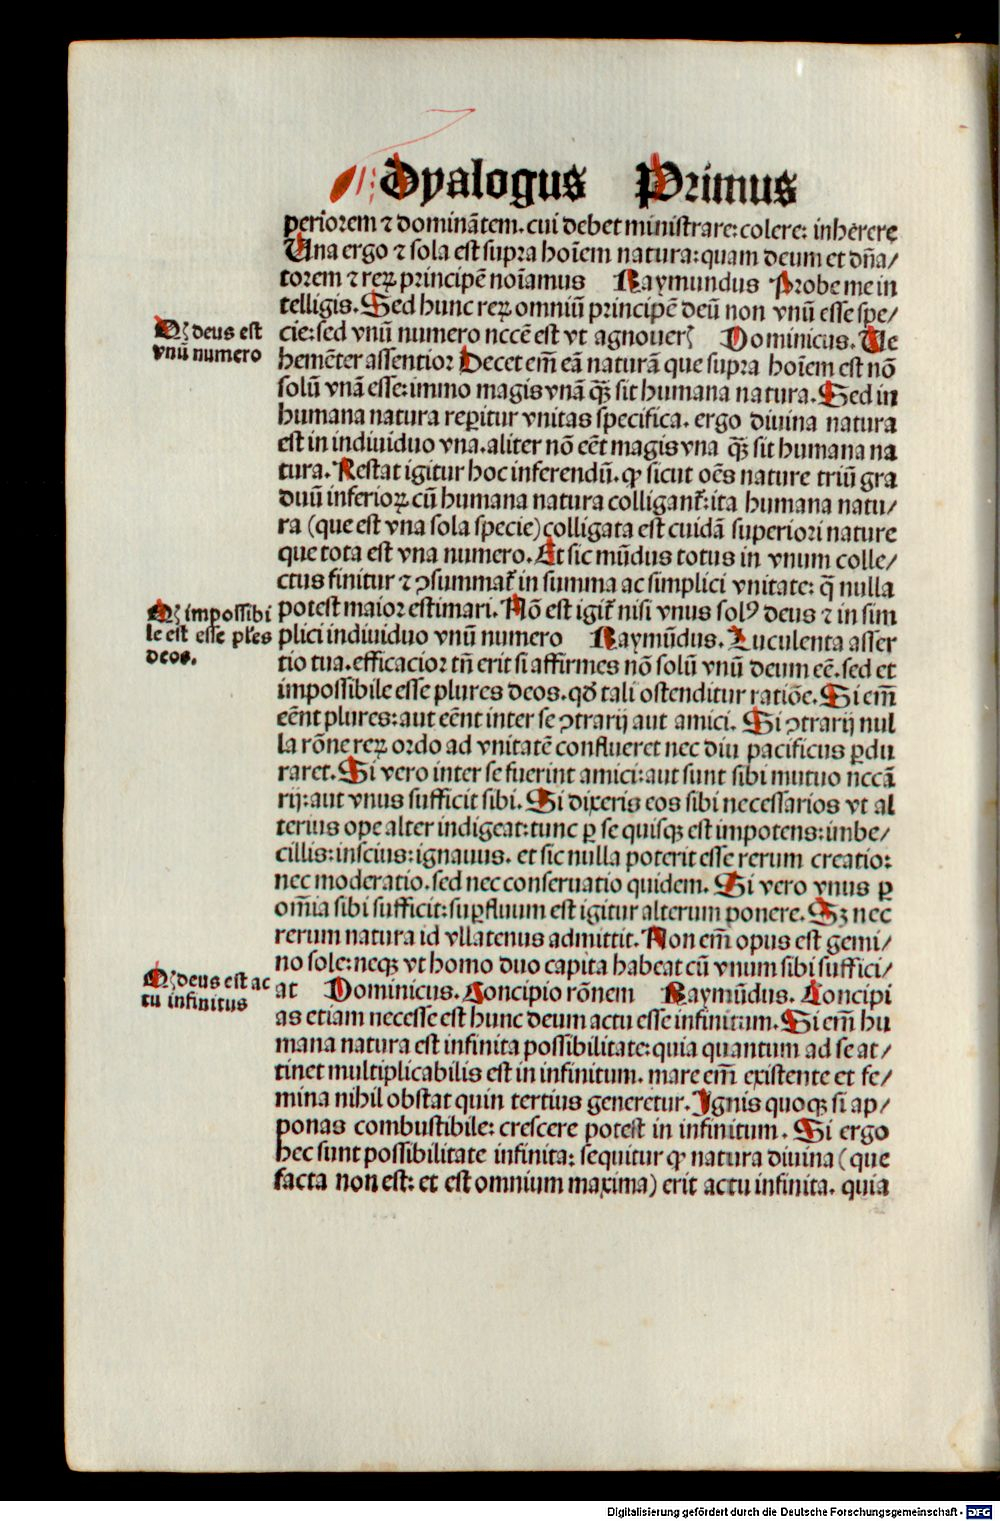 Dyalogus Primus
periorem ⁊ dominātem. cui debet ministrare: colere: inherere
Una ergo ⁊ sola est supra hoīem natura: quam deum et dn̄a/
torem ⁊ reꝝ principē noīamus Raymundus Probe me in
telligis. Sed hunc reꝝ omniū principē deū non vnū esse spe/
cie: sed vnū numero nccē est vt agnouer̄ Dominicus. Ue
hemēter assentior Decet em̄ eā naturā que supra hoīem est nō
solū vnā esse: immo magis vnā q̄ꝫ sit humana natura. Sed in
humana natura reꝑitur vnitas specifica. ergo diuina natura
est in indiuiduo vna. aliter nō eēt magis vna q̄ꝫ sit humana na
tura. Restat igitur hoc inferendū. ꝙ sicut oēs nature triū gra
duū inferioꝝ cū humana natura colligant᷑: ita humana natu/
ra (que est vna sola specie) colligata est cuidā superiori nature
que tota est vna numero. Et sic mūdus totus in vnum colle/
ctus finitur ⁊ ꝯsummat᷑ in summa ac simplici vnitate: q̄ nulla
potest maior estimari. Nō est igit᷑ nisi vnus solꝰ deus ⁊ in sim
plici indiuiduo vnū numero Raymūdus. Luculenta asser
tio tua. efficacior tn̄ erit si affirmes nō solū vnū deum eē. sed et
impossibile esse plures deos. qđ tali ostenditur ratiōe. Si em̄
eēnt plures: aut eēnt inter se ꝯtrarij aut amici. Si ꝯtrarij nul
la rōne reꝝ ordo ad vnitatē conflueret nec diu pacificus ꝑdu
raret. Si vero inter se fuerint amici: aut sunt sibi mutuo nccā
rij: aut vnus sufficit sibi. Si dixeris eos sibi necessarios vt al
terius ope alter indigeat: tunc ꝑ se quisqꝫ est impotens: imbe/
cillis: inscius: ignauus. et sic nulla poterit esse rerum creatio:
nec moderatio. sed nec conseruatio quidem. Si vero vnus ꝑ
om̄ia sibi sufficit: suꝑfluum est igitur alterum ponere. Sꝫ nec
rerum natura id vllatenus admittit. Non em̄ opus est gemi/
no sole: neqꝫ vt homo duo capita habeat cū vnum sibi suffici/
at Dominicus. Concipio rōnem Raymūdus. Concipi
as etiam necesse est hunc deum actu esse infinitum. Si em̄ hu
mana natura est infinita possibilitate: quia quantum ad se at/
tinet multiplicabilis est in infinitum. mare em̄ existente et fe/
mina nihil obstat quin tertius generetur. Ignis quoqꝫ si ap/
ponas combustibile: crescere potest in infinitum. Si ergo
hec sunt possibilitate infinita: sequitur ꝙ natura diuina (que
facta non est: et est omnium maxima) erit actu infinita. quia
Qꝫ deus est
vnū numero
Qꝫ impossibi
le est esse pl̄es
deos.
Qꝫ deus est ac
tu infinitus
Digitalisierung gefördert durch die Deutsche Forschungsgemeinschaft - DFG